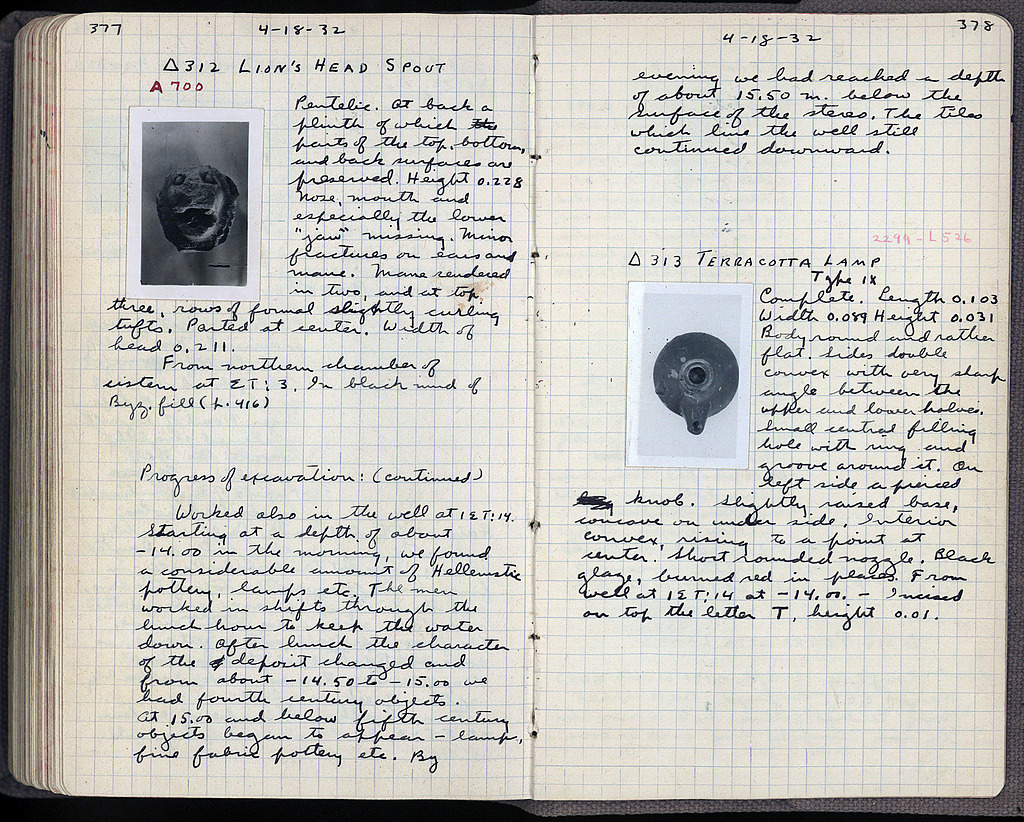 377
4-18-32
Δ312 LION'S HEAD SPOUT
A 700
Pentelic. At back a
plinth of which the
parts of the top, bottom,
and back surfaces are
preserved. Height 0.228
Nose, mouth and
especially the lower
"jaw" missing. Minor
fractures on ears and
mane. Mane rendered
in two, and at top,
three, rows of formal slightly curling
tufts. Parted at center. Width of
head 0.211.
From northern chamber of
cistern at ΣΤ:3. In black mud of
Byz. fill (L. 416)
Progress of excavation: (continued)
Worked also in the well at 1ΣΤ:14.
Starting at a depth of about
-14.00 in the morning, we found
a considerable amount of Hellenistic
pottery, lamps etc. The men
worked in shifts through the
lunch hour to keep the water
down. After lunch the character
of the deposit changed and
from about -14.50 to -15.00 we
had fourth century objects.
At 15.00 and below fifth century
objects began to appear - lamp,
fine fabric pottery etc. By
378
4-18-32
evening we had reached a depth
of about 15.50 m. below the
surface of the stereo. The tiles
which line the well still
continued downward.
2299-L526
Δ313 TERRACOTTA LAMP
Type IX
Complete. Length 0.103
Width 0.089 Height 0.031
Body round and rather
flat. Sides double
convex with very sharp
angle between the
upper and lower halves.
Small central filling
hole with ring and
groove around it. On
left side a pierced
knob. Slightly raised base,
concave on under side. Interior
convex, rising to a point at
center. Short rounded nozzle. Black
glaze, burned red in places. From
well at 1ΣΤ:14 at -14.00. - Incised
on top the letter T, height 0.01.